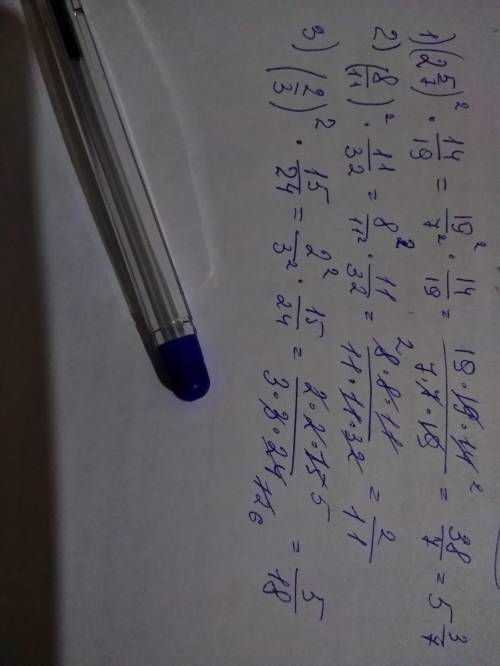 1) (2 5/7)² · 14/19 = 19²/7² · 14/19 = 19·19·14 2/7·7·19 = 38/7 = 5 3/7
2) (8/11)² · 11/32 = 8²/11² · 11/32 = 2 8·8·11/11·11·32 = 2/11
3) (2/3)² · 15/24 = 2²/3² · 15/24 = 2·2·15 5/3·3·24 12 6 = 5/18